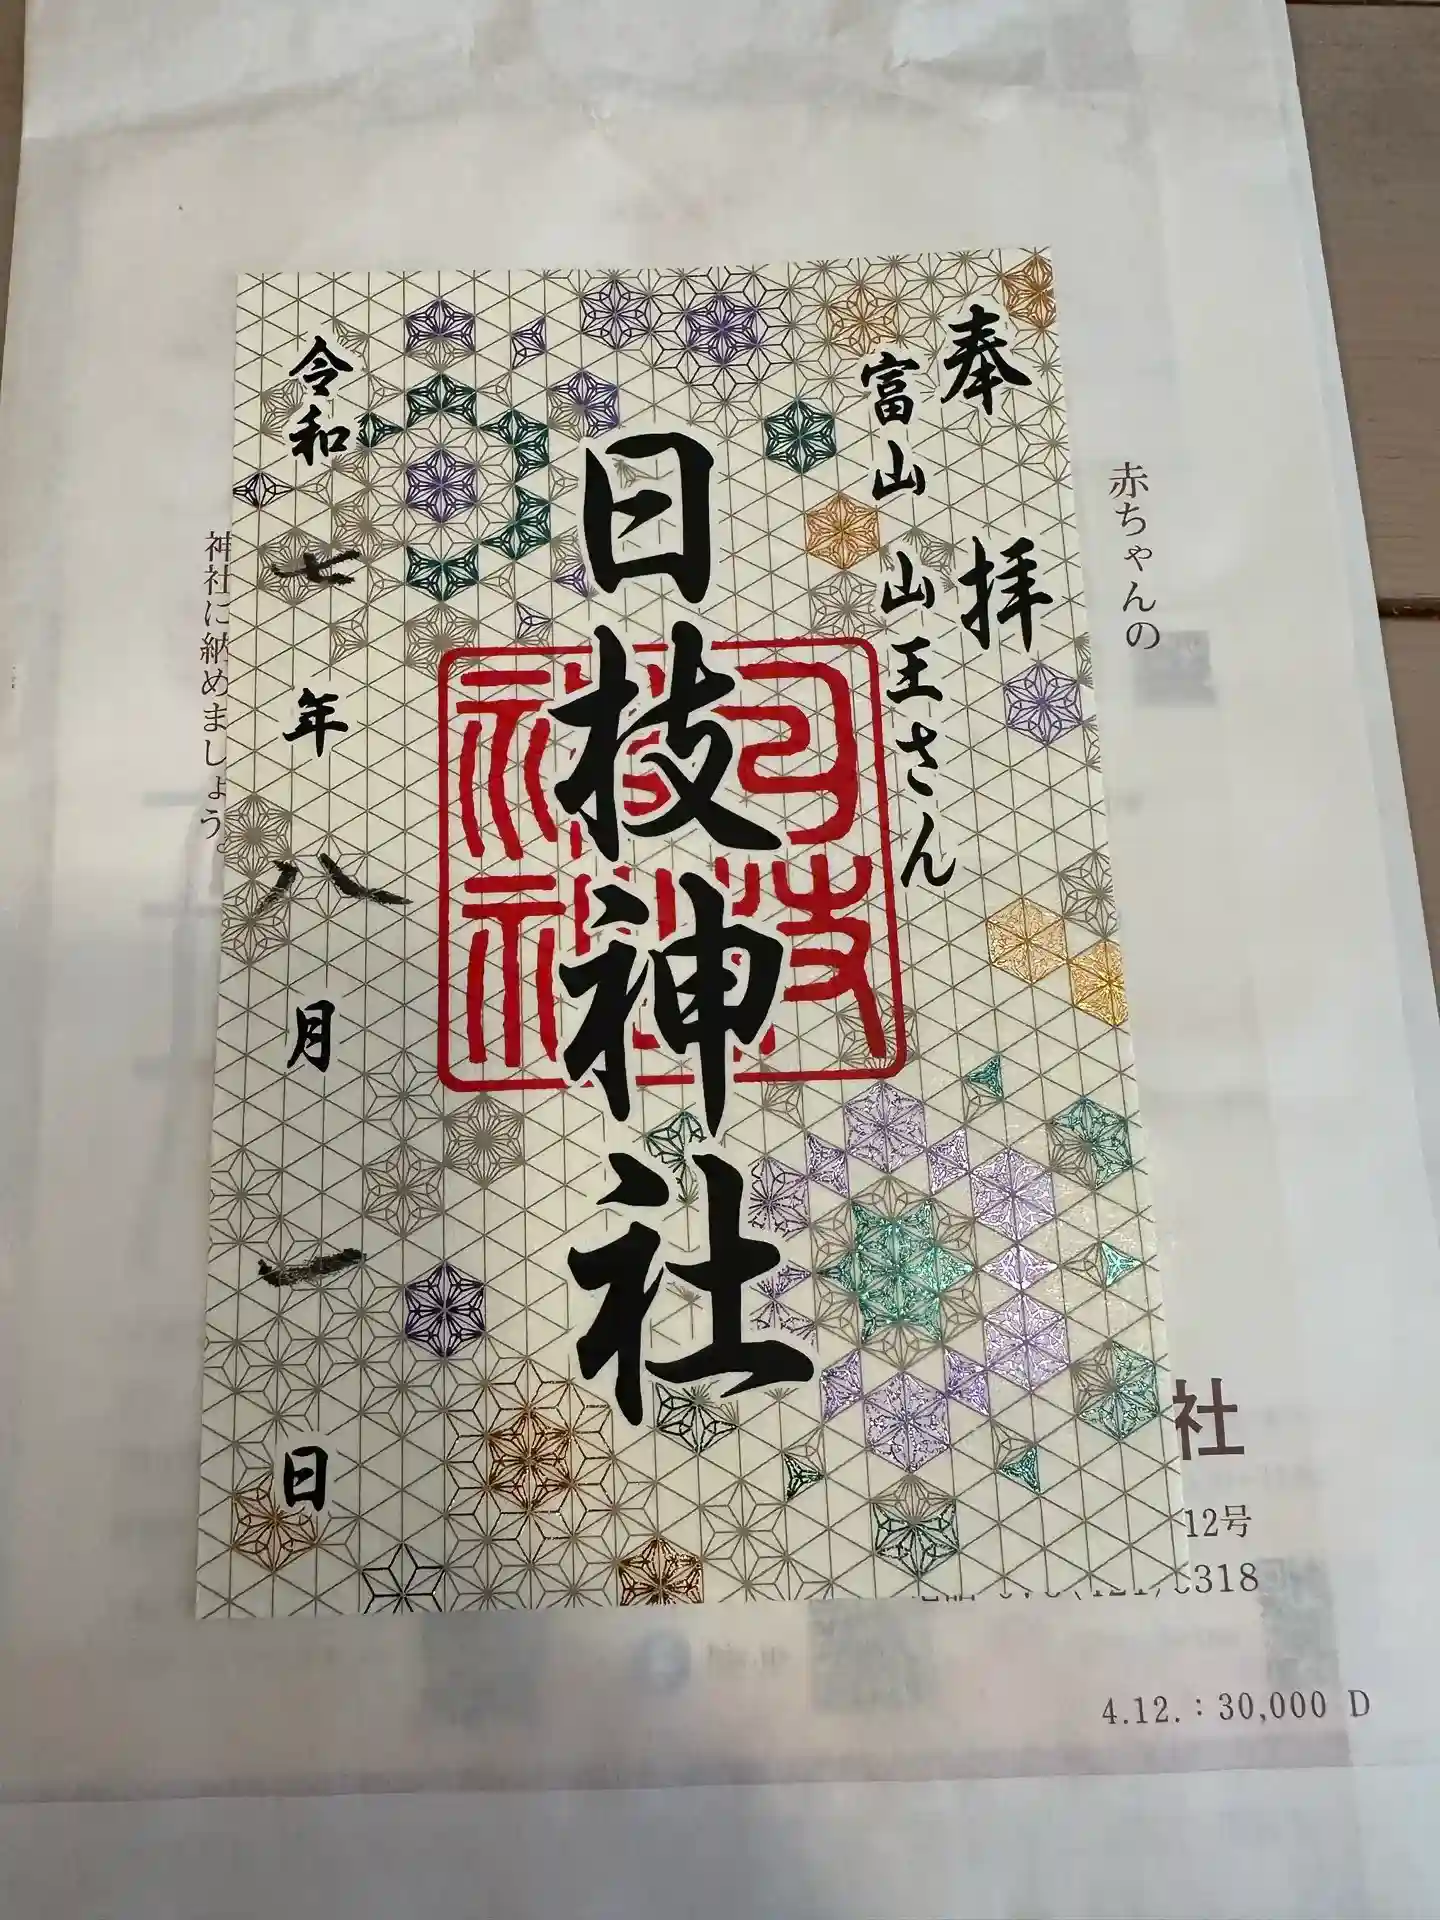 奉拝
富山 山王さん
日枝神社
令和七年八月一日
日枝神社
赤ちゃんの
神社に納めましょう。
社
12号
318
4.12.：30,000 D